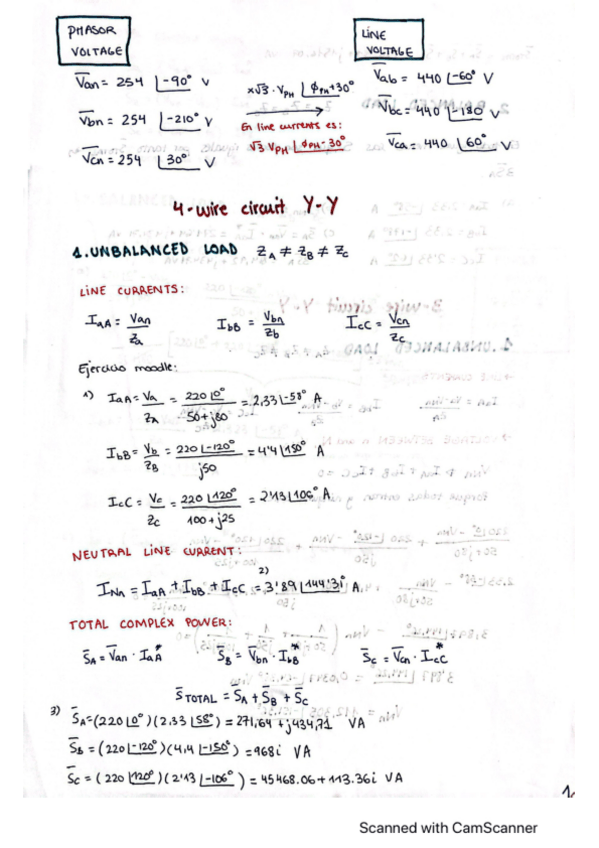 PHASOR VOLTAGE
LINE VOLTAGE
V̅an = 254 ∠-90° V
V̅bn = 254 ∠-210° V
V̅cn = 254 ∠30° V
x√3 · VPH ∠ϕPH+30°
En line currents es:
√3 VPH ∠ϕPH-30°
V̅ab = 440 ∠-60° V
V̅bc = 440 ∠-180 V
V̅ca = 440 ∠60° V
4-wire circuit Y-Y
1. UNBALANCED LOAD ZA ≠ ZB ≠ ZC
LINE CURRENTS:
IaA = Van/Za IbB = Vbn/Zb IcC = Vcn/Zc
Ejercicio moodle:
1) IaA = Va/ZA = 220∠0°/50+j80 = 2,33∠-58° A
IbB = Vb/ZB = 220∠-120°/j50 = 4'4∠150° A
IcC = Vc/Zc = 220∠120°/100+j25 = 2'13∠106° A
NEUTRAL LINE CURRENT:
2)
INn = IaA + IbB + IcC = 3'89∠144'31° A
TOTAL COMPLEX POWER:
S̅A = V̅an · IaA* S̅B = V̅bn · IbB* S̅c = V̅cn · IcC*
S̅TOTAL = S̅A + S̅B + S̅C
3) S̅A = (220∠0°)(2,33∠58°) = 271,64 + j434,71 VA
S̅b = (220∠-120°)(4,4∠-150°) = 968i VA
S̅c = (220∠120°)(2'13∠-106°) = 45468.06 + 113.36i VA
Scanned with CamScanner